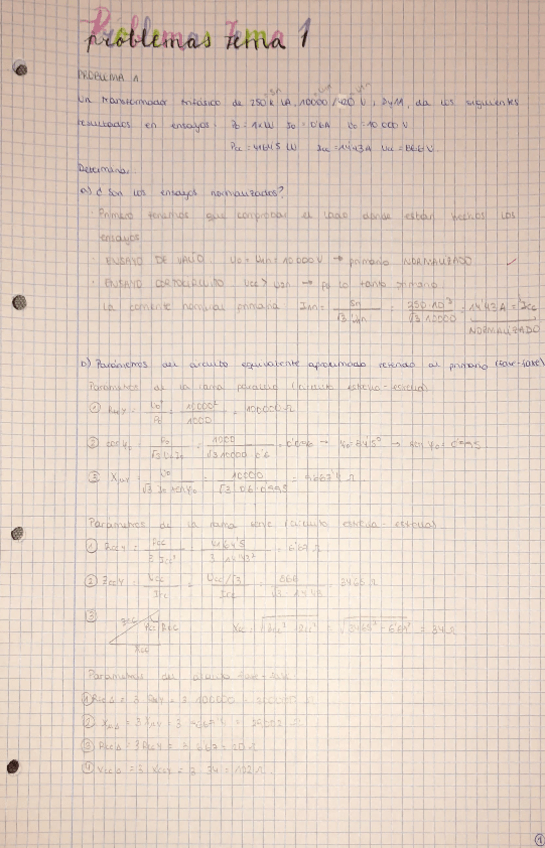 problemas tema 1
PROBLEMA 1.
Un transformador trifásico de 250 kVA, 10000/420 V, Dy11, da los siguientes
resultados en ensayos: P0 = 1kW I0 = 0'6A U0 = 10000 V
Pcc = 4164'5 W Icc = 14'43A Ucc = 866 V
Determina:
a) ¿Son los ensayos normalizados?
· Primero tenemos que comprobar el lado donde están hechos los
ensayos
· ENSAYO DE VACÍO U0 = U1n = 10000V → primario NORMALIZADO ✓
· ENSAYO CORTOCIRCUITO Ucc > U2n → Por lo tanto primario
La corriente nominal primaria I1n = Sn / √3 U1n = 250·10³ / √3 10000 = 14'43 A = Icc
NORMALIZADO
b) Parámetros del circuito equivalente aproximado referido al primario (fase-fase)
Parámetros de la rama paralelo (circuito estrella-estrella)
① = U0² / P0 = 10000² / 1000 = 100000 Ω
② cos φ0 = P0 / √3 U0 I0 = 1000 / √3 10000 0'6 = 0'096 → φ0 = 84'5° → sen φ0 = 0'995
③ = U0 / √3 I0 sen φ0 = 10000 / √3 0'6 0'995 = Ω
Parámetros de la rama serie (circuito estrella-estrella)
① RccY = Pcc / 3 Icc² = 4164'5 / 3 14'43² = 6'67 Ω
② ZccY = Ucc / Icc = Ucc/√3 / Icc = 866 / √3 14'43 = 34'65 Ω
③ Zcc Rcc Xcc Xcc = √Zcc² - Rcc² = = 34 Ω
Parámetros del circuito fase-fase
① = 3 = 3 100000 = 300000 Ω
② = 3 = 3 = Ω
③ RccΔ = 3RccY = 3 6'67 = 20 Ω
④ XccΔ = 3 XccY = 3 34 = 102 Ω
1